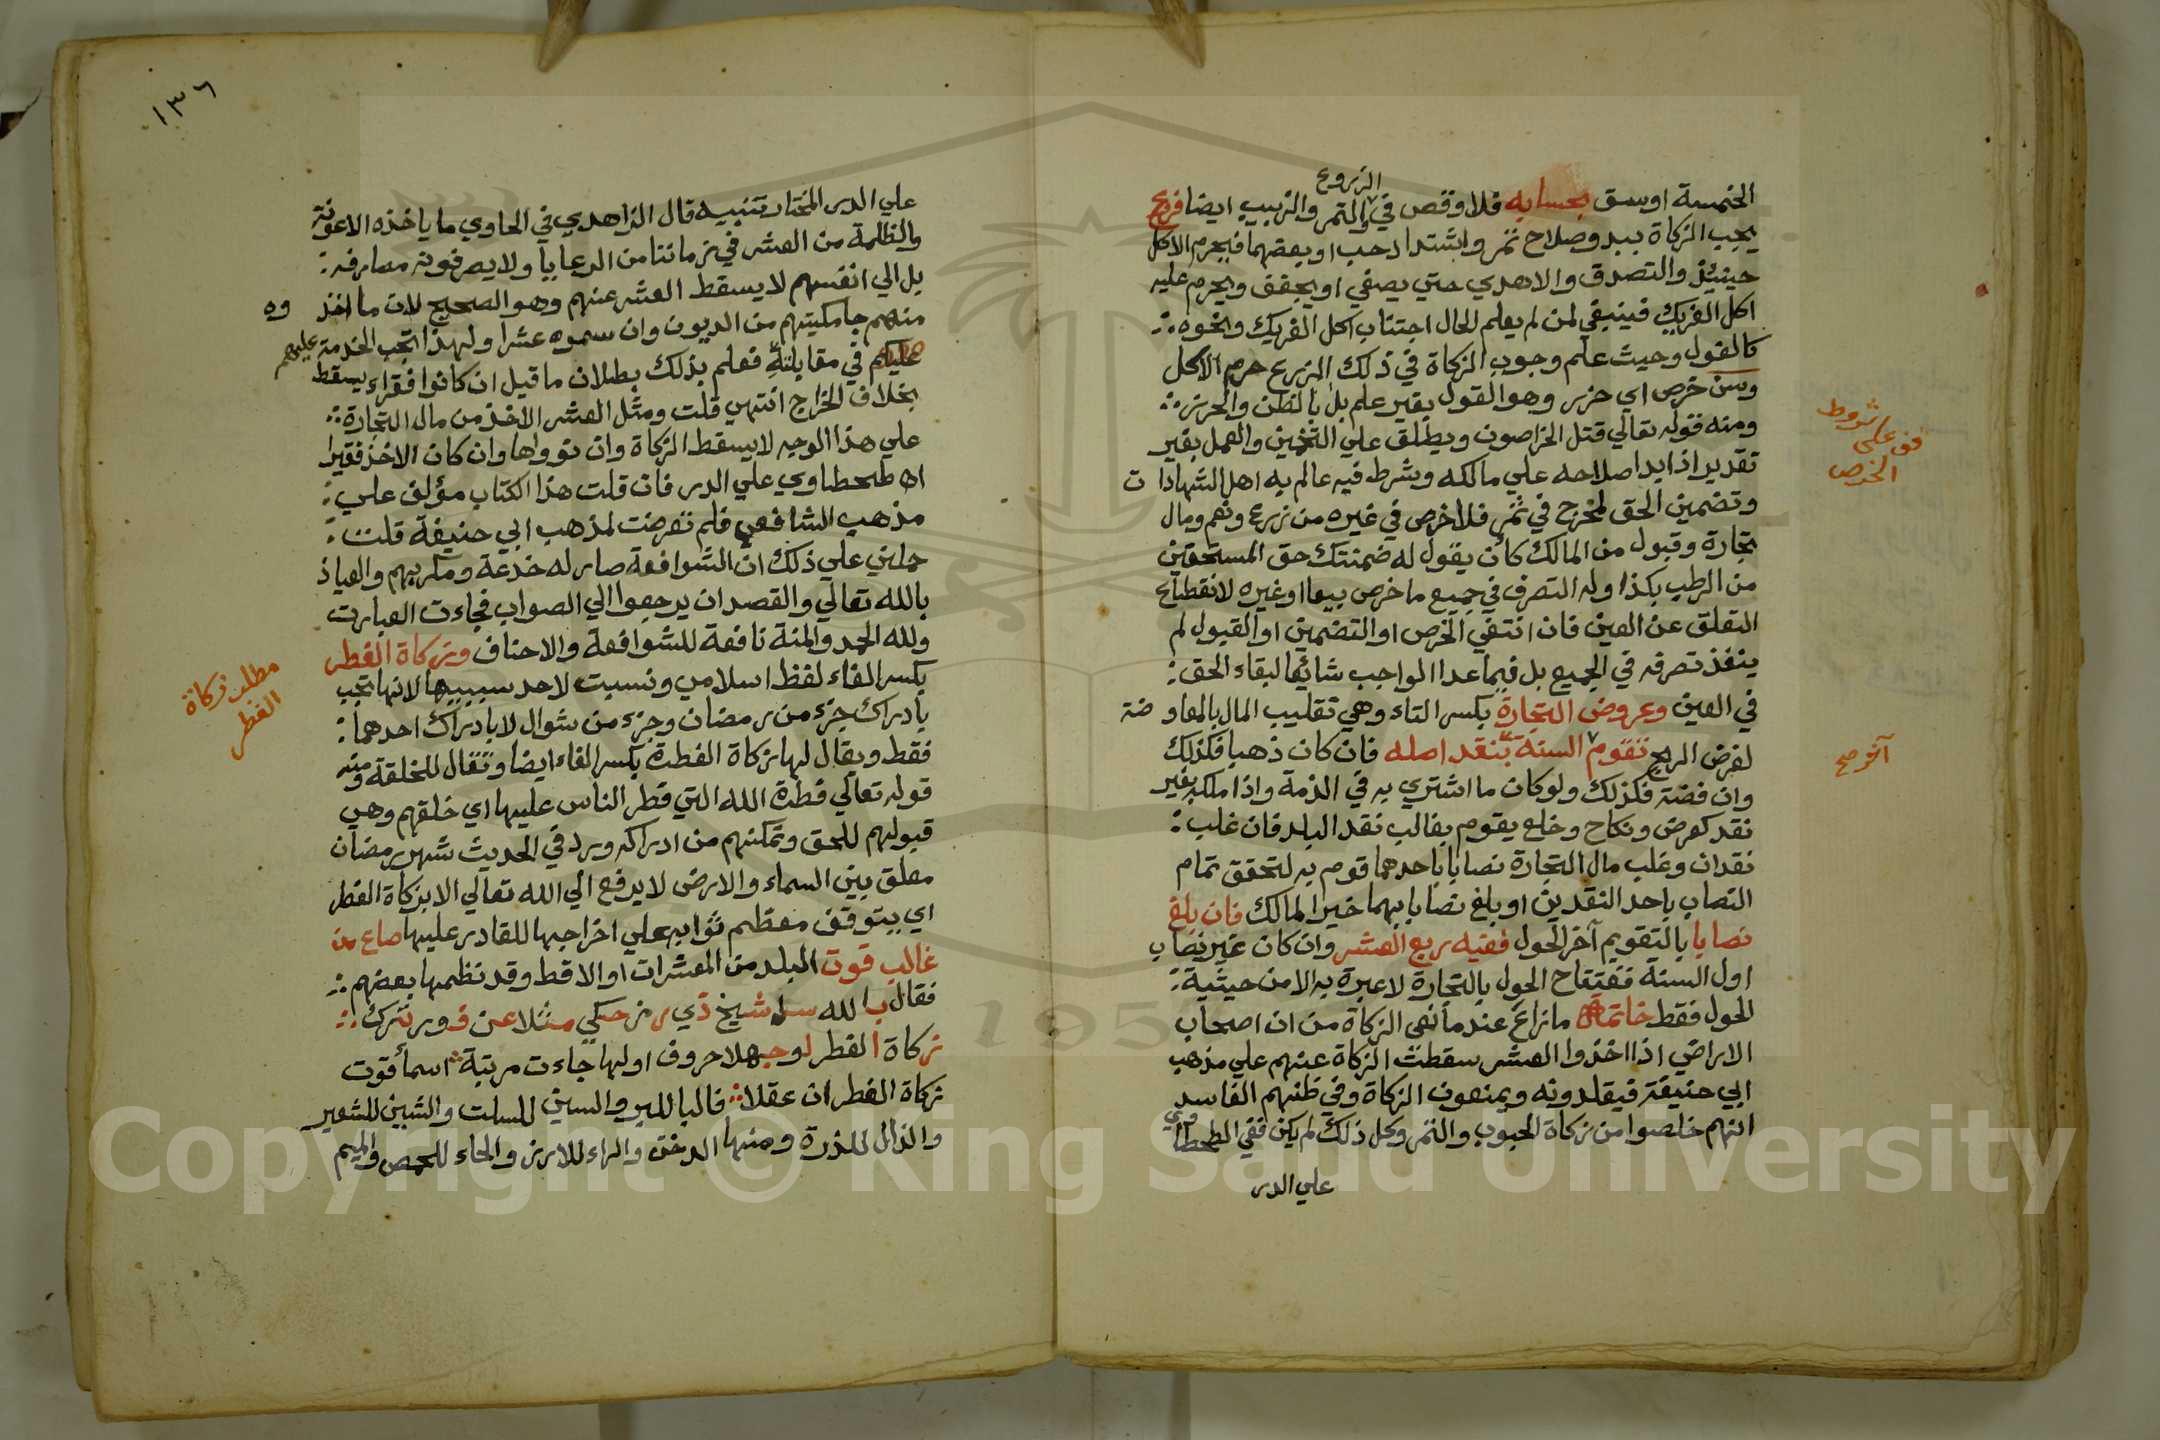 الزروع
الخمسة اوسق بحسابه فلا وقص في والتمر والزبيب ايضا فروع
يجب الزكاة ببدو صلاح ثمر واشتداد حب او بعضهما فيحرم الاكل
حينئذ والتصدق والاهدي حتي يصفي او يجفف ويحرم عليه
اكل الفريك فينبغي لمن لم يعلم الحال اجتناب اكل الفريك ونحوه
كالفول وحيث علم وجوب الزكاة في ذلك الزرع حرم الاكل
وسن خرص اي حزر وهو القول بغير علم بل بالظن والحرز
ومنه قوله تعالي قتل الخراصون ويطلق علي التخمين والعمل بغير
تقدير اذا بدا صلاحه علي مالكه وشرط فيه عالم به اهل الشهادات
وتضمين الحق لمخرج في ثمر فلا خرص في غيره من زرع ونعم ومال
تجارة وقبول من المالك كأن يقول له ضمنتك حق المستحقين
من الرطب بكذا وله التصرف في جميع ما خرص بيعا اوغيره لانقطاع
التعلق عن العين فان انتفي الخرص او التضمين او القبول لم
ينفذ تصرفه في الجميع بل فيما عدا الواجب شائعا لبقاء الحق
في العين وعروض التجارة بكسر التاء وهي تقليب المال بالمعاوضة
لغرض الربح تقوم السنة بنقد اصله فان كان ذهبا فكذلك
وان فضة فكذلك ولو كان ما اشتري به في الذمة واذا ملكه بغير
نقد كعرض ونكاح وخلع يقوم بغالب نقد البلد فان غلب
نقدان وغلب مال التجارة نصابا باحدهما قوم به لتحقق تمام
النصاب باحد النقدين او بلغ نصابا بهما خير المالك فان بلغ
نصابا بالتقويم آخر الحول ففيه ربع العشر وان كان غير نصاب
اول السنة ففتتاح الحول بالتجارة لا عبرة به الا من حيثية
الحول فقط خاتمة ما نراع عندما نهي الزكاة من ان اصحاب
الاراضي اذا اخذوا العشر سقطت الزكاة عنهم علي مذهب
ابي حنيفة فيقلدونه ويمنعون الزكاة وفي ظنهم الفاسد
انهم خلصوا من زكاة الحبوب والثمر وكل ذلك لم يكن ففي الطحطاوي
علي الدر
قف على شروط
الخرص
آخر صح
١٣٦
علي الدر المختار تنبيه قال الزاهدي في الحاوي ما ياخذه الاعونة
والظلمة من العشر في زماننا من الرعايا ولا يصرفونه مصارفه
بل الي انفسهم لا يسقط العشر عنهم وهو الصحيح لان ما اخذوه
منهم جامكيتهم من الديون وان سموه عشرا ولهذا تجب الخدمة عليهم
عليكم في مقابلته فعلم بذلك بطلان ما قيل ان كانوا فقراء يسقط
بخلاف الخراج انتهي قلت ومثل العشر الاخذ من مال التجارة
علي هذا الوجه لا يسقط الزكاة وان نووا ها وان كان الاخذ فقيرا
اه طحطاوي علي الدر فان قلت هذا الكتاب مؤلف علي
مذهب الشافعي فلم تعرضت لمذهب ابي حنيفة قلت
حملني علي ذلك ان الشوافعة صار له خدعة ومكر بهم والعياذ
بالله تعالي والقصد ان يرجعوا الي الصواب فجاءت العبارت
ولله الحمد والمنة نافعة للشوافعة والاحناف وزكاة الفطر
بكسر الفاء لفظ اسلامي ونسبت لاحد سببيها لانها تجب
بادراك جزء من رمضان وجزء من شوال لا بادراك احدهما
فقط ويقال لها زكاة الفطرة بكسر الفاء ايضا وتقال للخلقة ومنه
قوله تعالي فطرة الله التي فطر الناس عليها اي خلقهم وهي
قبولهم للحق وتمكنهم من ادراكه وورد في الحديث شهر رمضان
معلق بين السماء والارض لا يرفع الي الله تعالي الا بزكاة الفطر
اي يتوقف معظم ثوابه علي اخراجها للقادر عليها صاع من
غالب قوت البلد من المعشرات او الاقط وقد نظمها بعضهم
فقال بالله سل شيخ ذي رمز حكي مثلا عن فور ترك
زكاة الفطر لو جهلا حروف اولها جاءت مرتبة اسما قوت
زكاة الفطر ان عقلا فالبا للبر والسين للسلت والشين للشعير
والذال للذرة ومنها الدخن والراء للارز والحاء للحمص والميم
مطلب زكاة
الفطر
Copyright © King Saud University
195